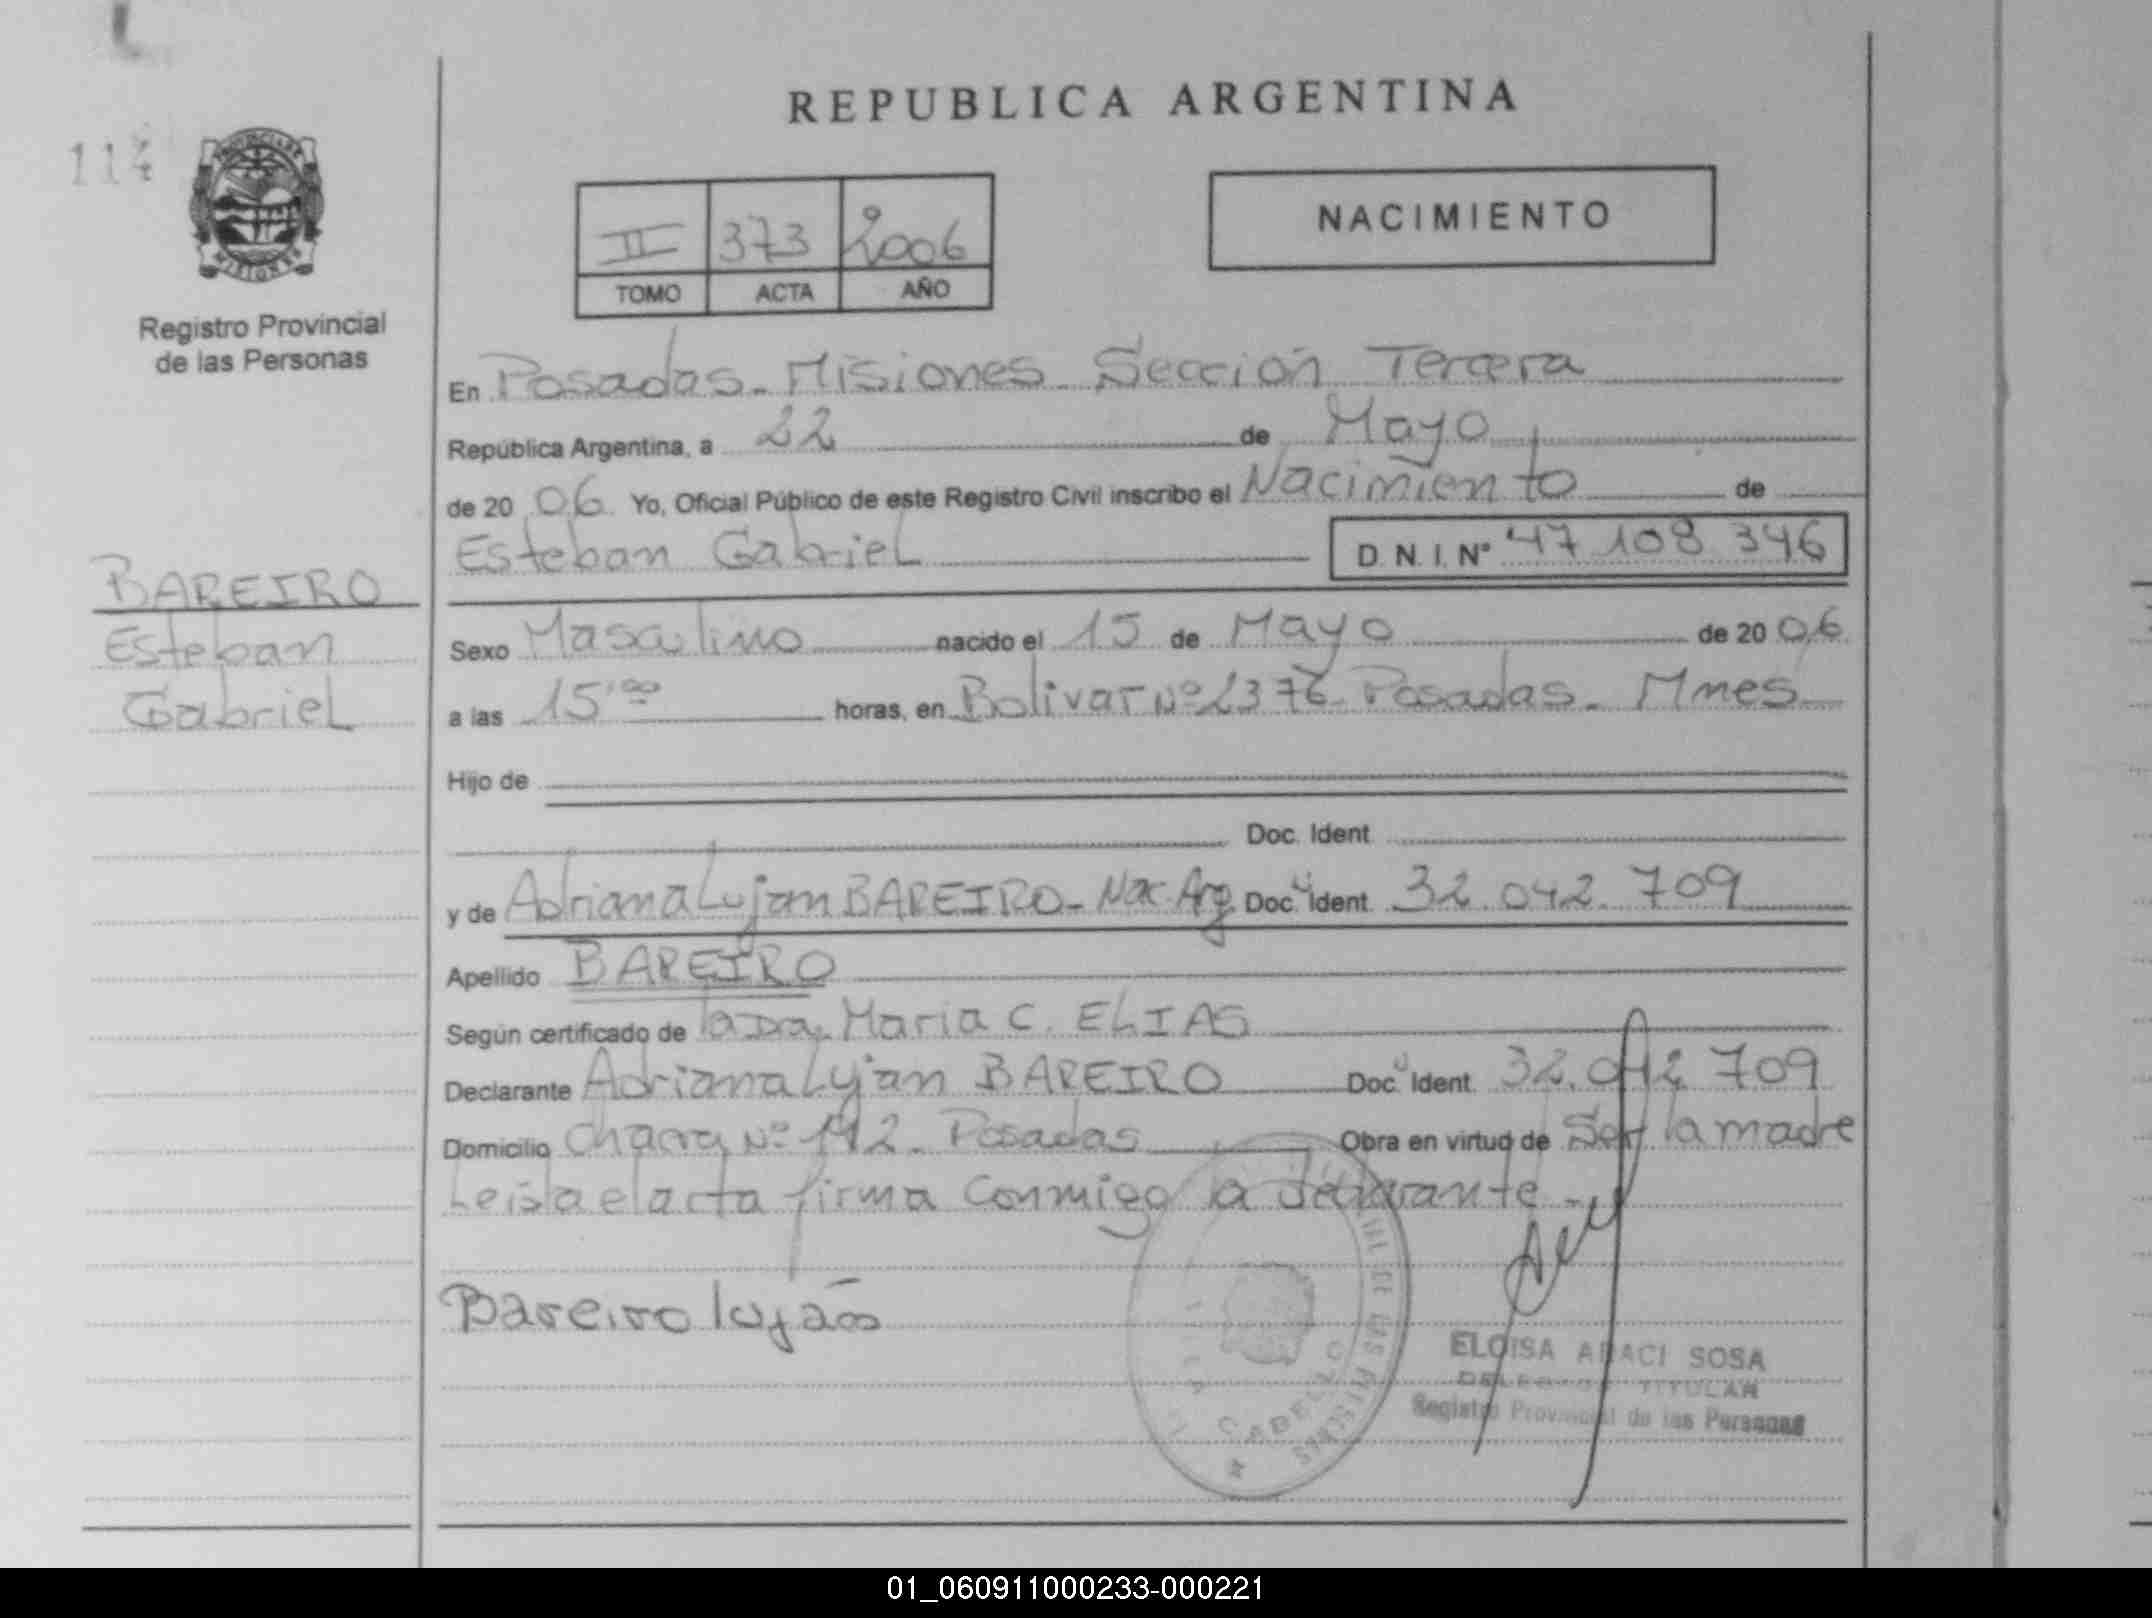 REPUBLICA ARGENTINA
PROVINCIA DE
MISIONES
Registro Provincial
de las Personas
II 373 2006
TOMO ACTA AÑO
NACIMIENTO
En Posadas - Misiones Sección Tercera
República Argentina, a 22 de Mayo
de 20 06 Yo, Oficial Público de este Registro Civil inscribo el Nacimiento de
Esteban Gabriel D. N. I. Nº 47 108 346
BAREIRO
Esteban
Gabriel
Sexo Masculino nacido el 15 de Mayo de 20 06
a las 15,00 horas, en Bolivar Nº 2376 - Posadas - Mnes
Hijo de
Doc. Ident
y de Adriana Lujan BAREIRO - Nac. Arg Doc. Ident 32.042.709
Apellido BAREIRO
Según certificado de la Dra. Maria C. ELIAS
Declarante Adriana Lujan BAREIRO Doc. Ident. 32.042 709
Domicilio Chacra Nº 192 - Posadas Obra en virtud de Ser la madre
Leisla el acta firma Conmigo la declarante -
Bareiro lujan
CABELLO
DE LAS MISIONES
ELOISA ARACI SOSA
DELEGADO TITULAR
Registro Provincial de las Personas
01_060911000233-000221